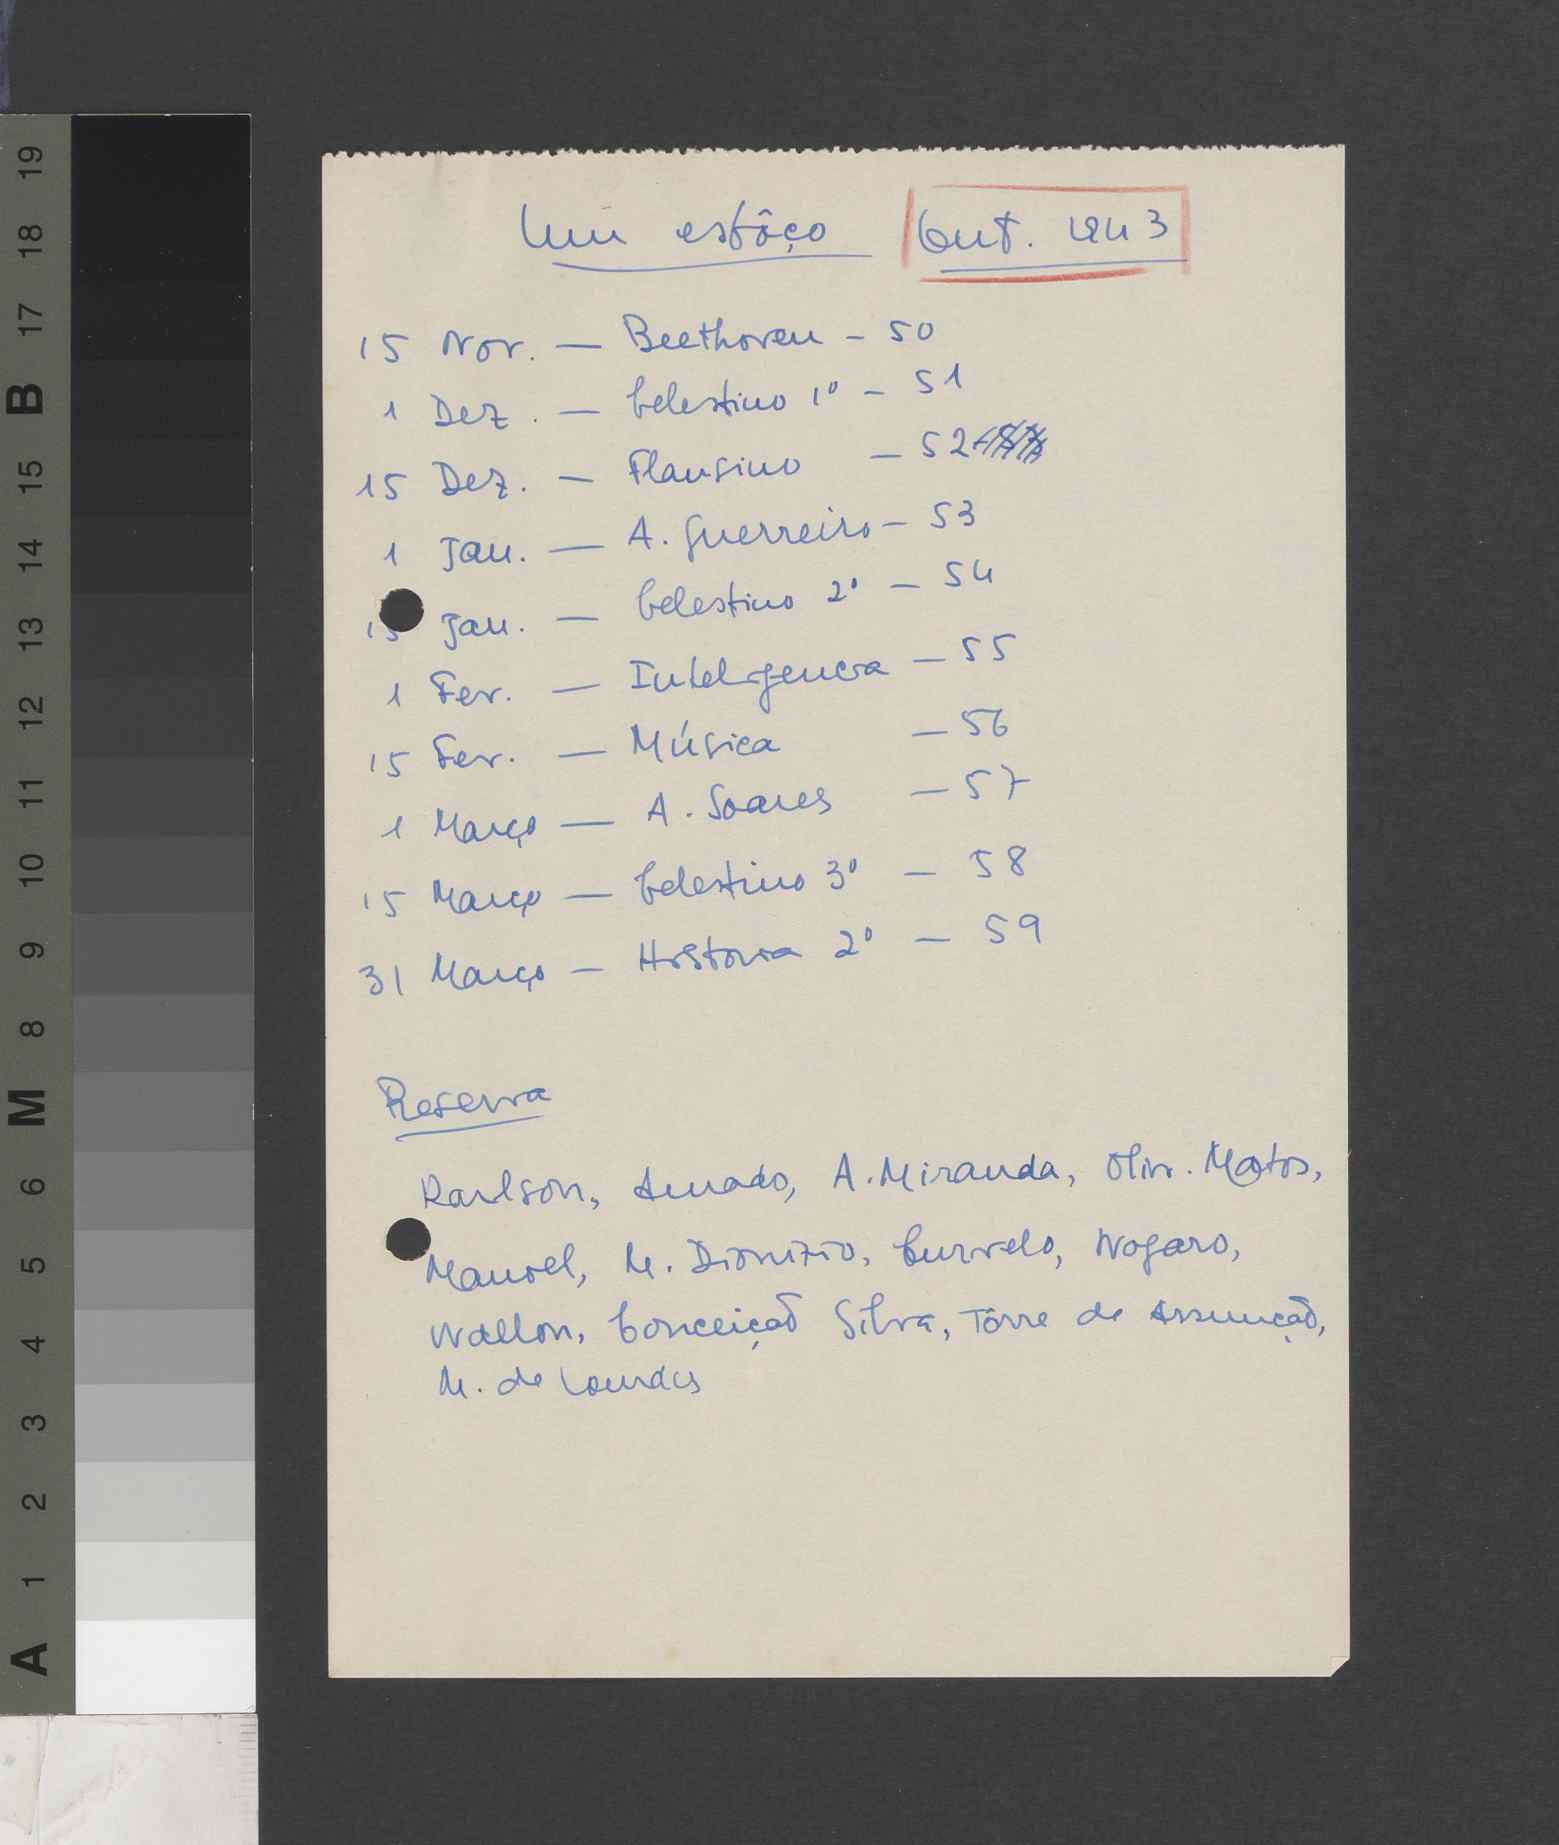 Um esfôço Out. 1943
15 Nov. — Beethoven – 50
1 Dez. — Celestino 1º – 51
15 Dez. — Flausino – 52
1 Jan. — A. Guerreiro – 53
15 Jan. — Celestino 2º – 54
1 Fev. — Inteligencia – 55
15 Fev. — Música – 56
1 Março — A. Soares – 57
15 Março — Celestino 3º – 58
31 Março – Historia 2º – 59
Reserva
Karlson, Amado, A. Miranda, Oliv. Matos,
Manoel, M. Dionizio, Curvelo, Nogaro,
Wallon, Conceição Silva, Tôrre de Assunção,
M. de Lourdes
19
18
17
B
15
14
13
12
11
10
9
8
M
6
5
4
3
2
1
A